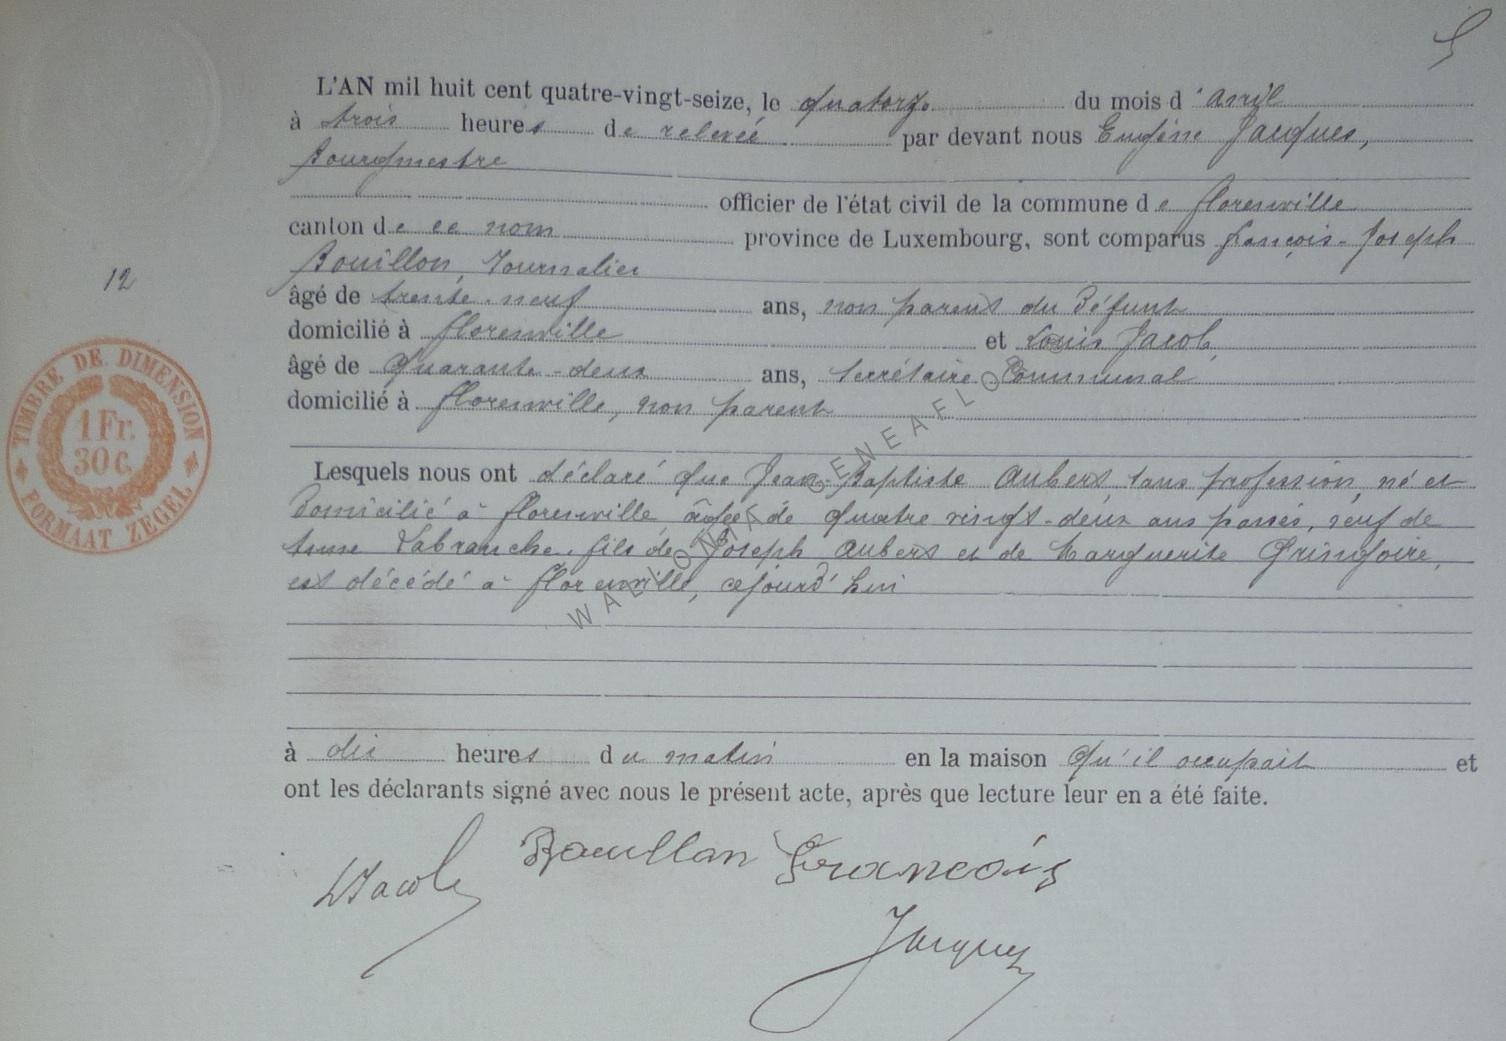 5
L'AN mil huit cent quatre-vingt-seize, le quatorze du mois d'avril
à trois heures de relevée par devant nous Eugène Jacques,
Bourgmestre
officier de l'état civil de la commune de Florenville
canton de ce nom province de Luxembourg, sont comparus François-Joseph
Bouillon, Journalier
12
âgé de trente-neuf ans, non parent du défunt
domicilié à Florenville et Louis Jacob,
âgé de quarante-deux ans, Secrétaire Communal
domicilié à Florenville, non parent
Lesquels nous ont déclaré que Jean-Baptiste Aubert, sans profession, né et
domicilié à Florenville, âgé de quatre vingt-deux ans passés, veuf de
Labranche, fils de Joseph Aubert et de Marguerite Gringoire,
est décédé à Florenville, cejourd'hui
à dix heures du matin en la maison qu'il occupait et
ont les déclarants signé avec nous le présent acte, après que lecture leur en a été faite.
LJacob Bouillon François
Jacques
TIMBRE DE DIMENSION
1 Fr.
30 c.
FORMAAT ZEGEL